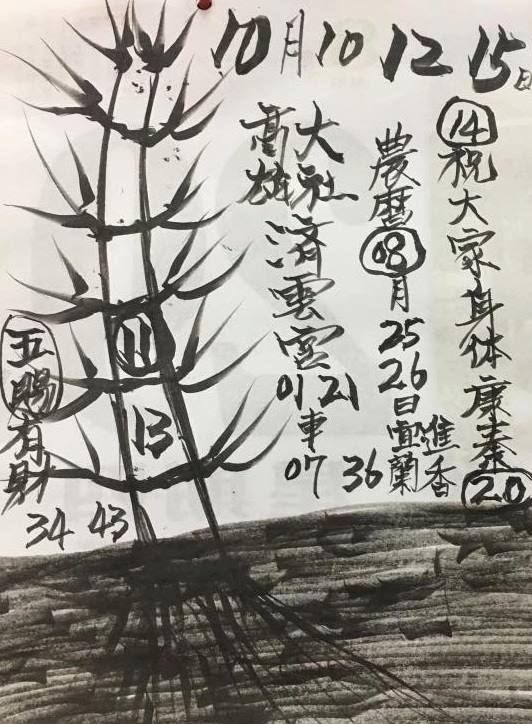 10月10 12 15日
14祝大家身体康泰20
農曆08月25 26日宜蘭進香
36
大社
高雄
済雲宮
01 21
車
07
11
13
五賜有財
34 43